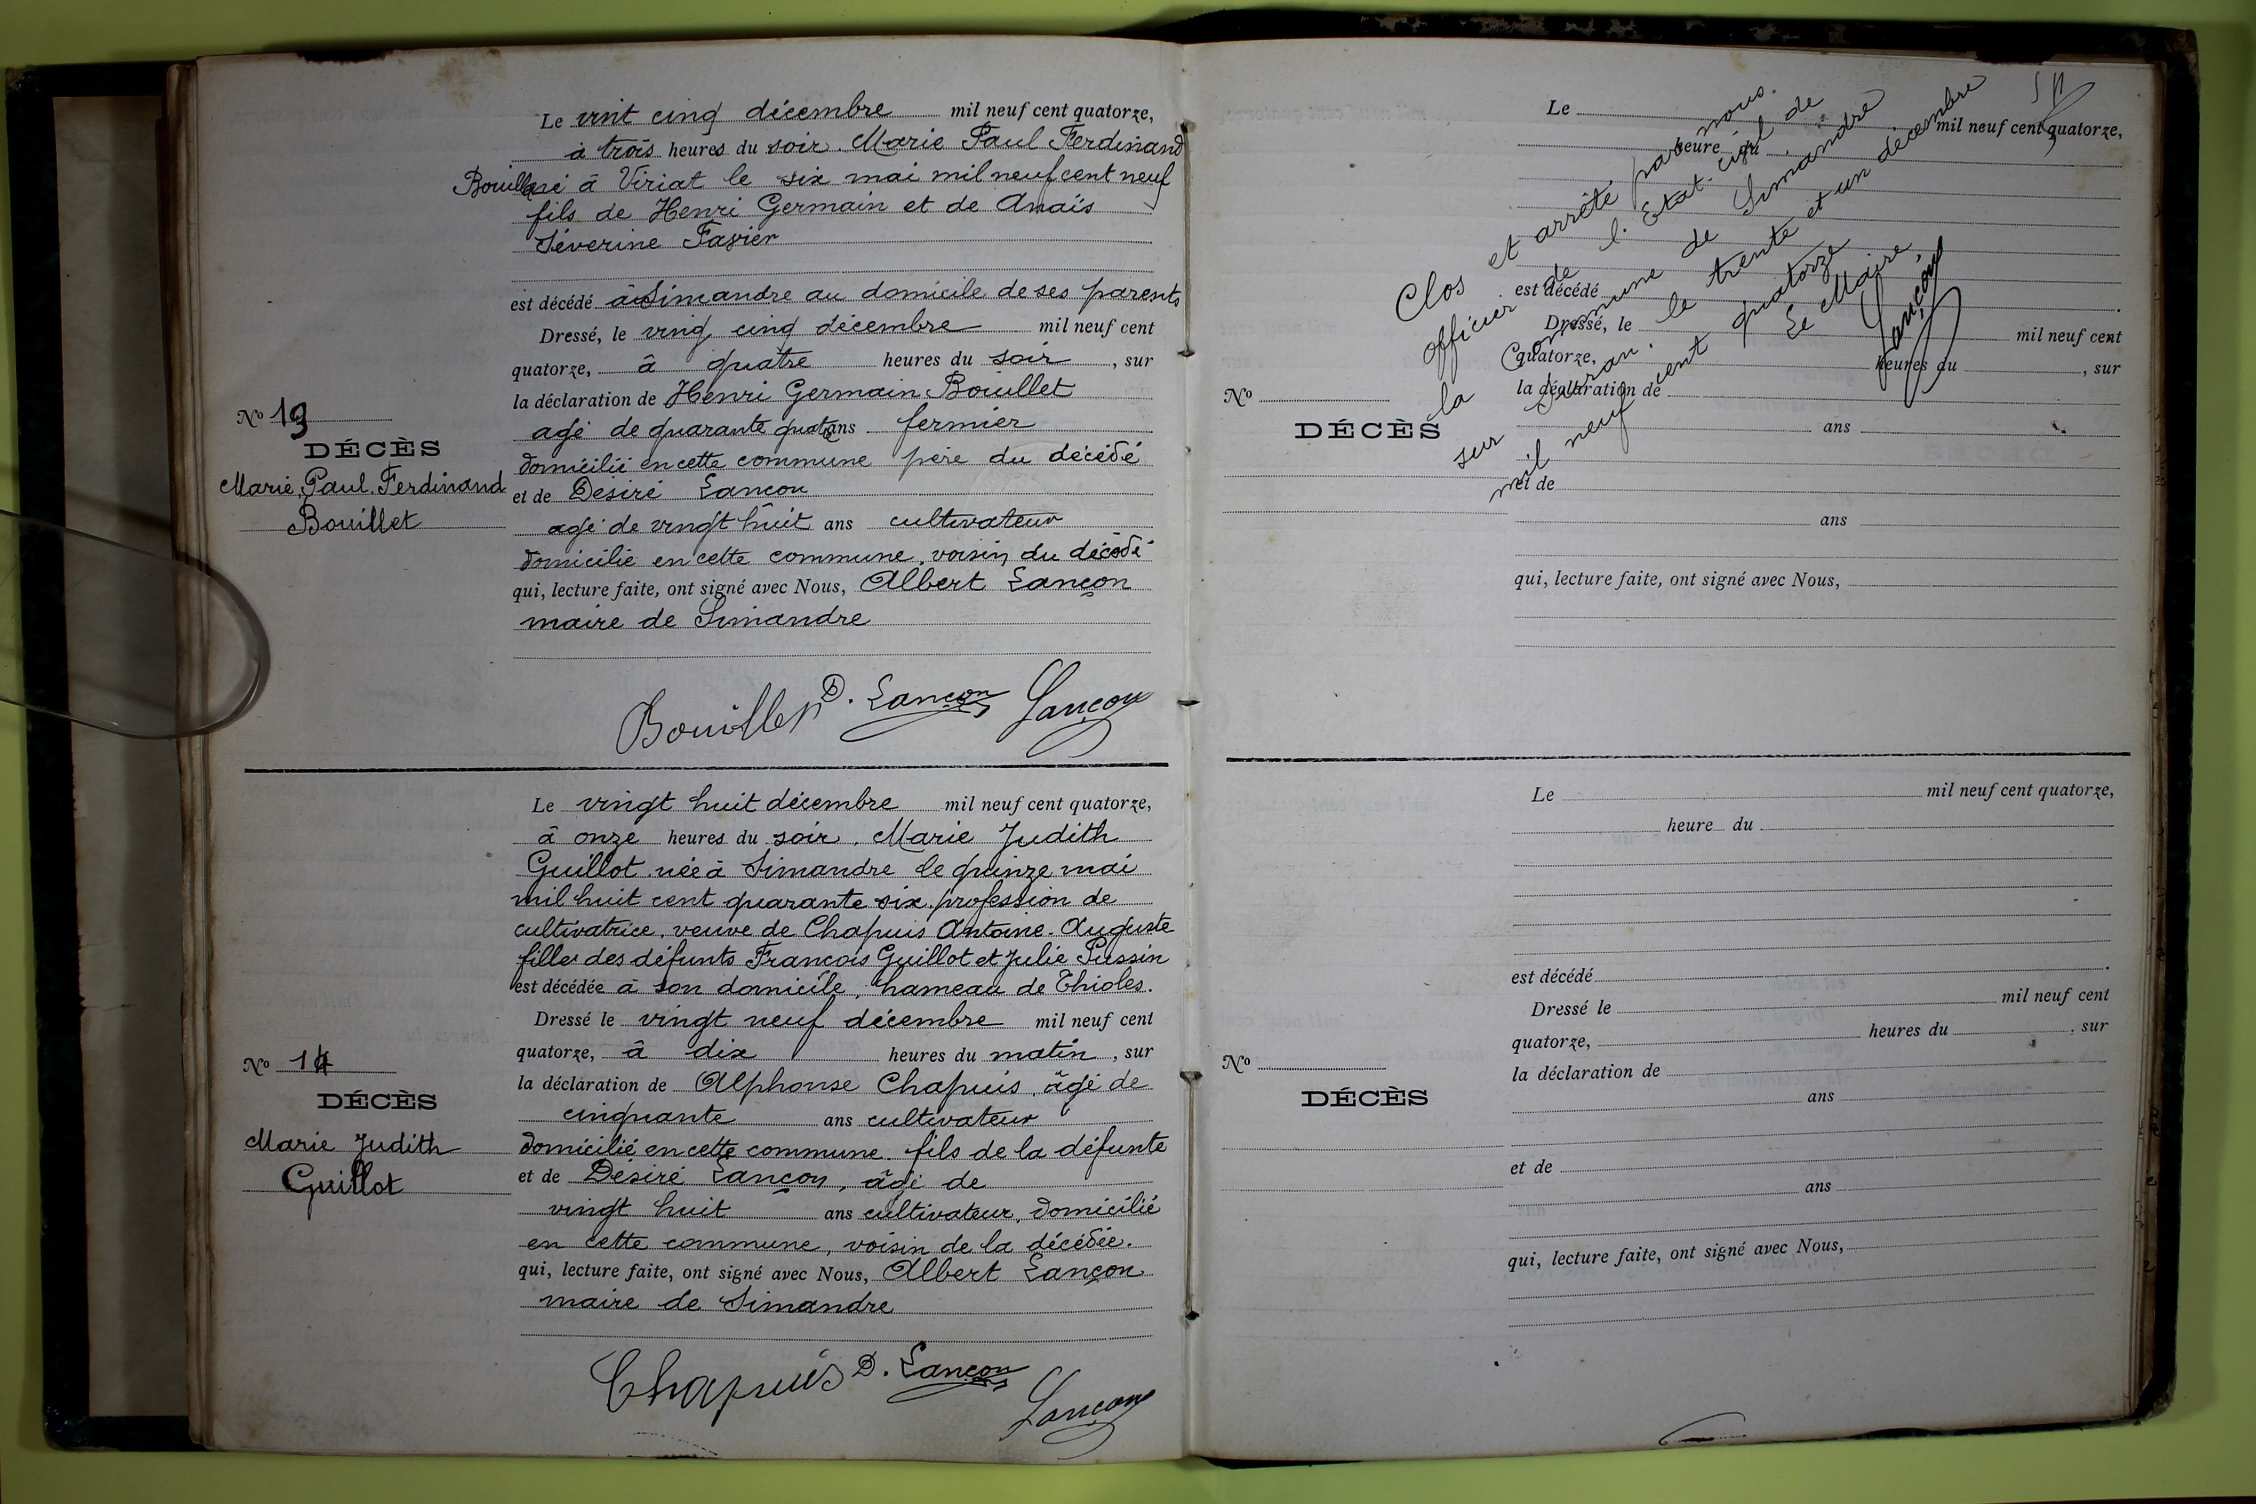 Le vint cinq décembre mil neuf cent quatorze,
à trois heures du soir. Marie Paul Ferdinand
Bouillet né à Viriat le six mai mil neuf cent neuf
fils de Henri Germain et de Anaïs
Séverine Favier
est décédé à Simandre au domicile de ses parents
Dressé, le vingt cinq décembre mil neuf cent
quatorze, à quatre heures du soir, sur
la déclaration de Henri Germain Bouillet
agé de quarante quatre ans fermier
domicilié en cette commune père du décédé
et de Désiré Lançon
agé de vingt huit ans cultivateur
domicilié en cette commune, voisin du décédé
qui, lecture faite, ont signé avec Nous, Albert Lançon
maire de Simandre
Bouillet D. Lançon Lançon
No 13
DÉCÈS
Marie Paul Ferdinand
Bouillet
Le vingt huit décembre mil neuf cent quatorze,
à onze heures du soir. Marie Judith
Guillot née à Simandre le quinze mai
mil huit cent quarante six. profession de
cultivatrice, veuve de Chapuis Antoine-Auguste
fille des défunts François Guillot et Julie Pussin
est décédée à son domicile, hameau de Thioles.
Dressé le vingt neuf décembre mil neuf cent
quatorze, à dix heures du matin, sur
la déclaration de Alphonse Chapuis, âgé de
cinquante ans cultivateur
domicilié en cette commune. fils de la défunte
et de Désiré Lançon, âgé de
vingt huit ans cultivateur, domicilié
en cette commune, voisin de la décédée.
qui, lecture faite, ont signé avec Nous, Albert Lançon
maire de Simandre
Chapuis D. Lançon
Lançon
No 14
DÉCÈS
Marie Judith
Guillot
Le mil neuf cent quatorze,
heure du
est décédé
Dressé, le mil neuf cent
quatorze, heures du , sur
la déclaration de
ans
et de
ans
qui, lecture faite, ont signé avec Nous,
No
DÉCÈS
Clos et arrêté par nous.
officier de l'Etat-civil de
la Commune de Simandre
sur Suran. le trente et un décembre
mil neuf cent quatorze
Le Maire
Lançon
Le mil neuf cent quatorze,
heure du
est décédé
Dressé le mil neuf cent
quatorze, heures du , sur
la déclaration de
ans
et de
ans
qui, lecture faite, ont signé avec Nous,
No
DÉCÈS